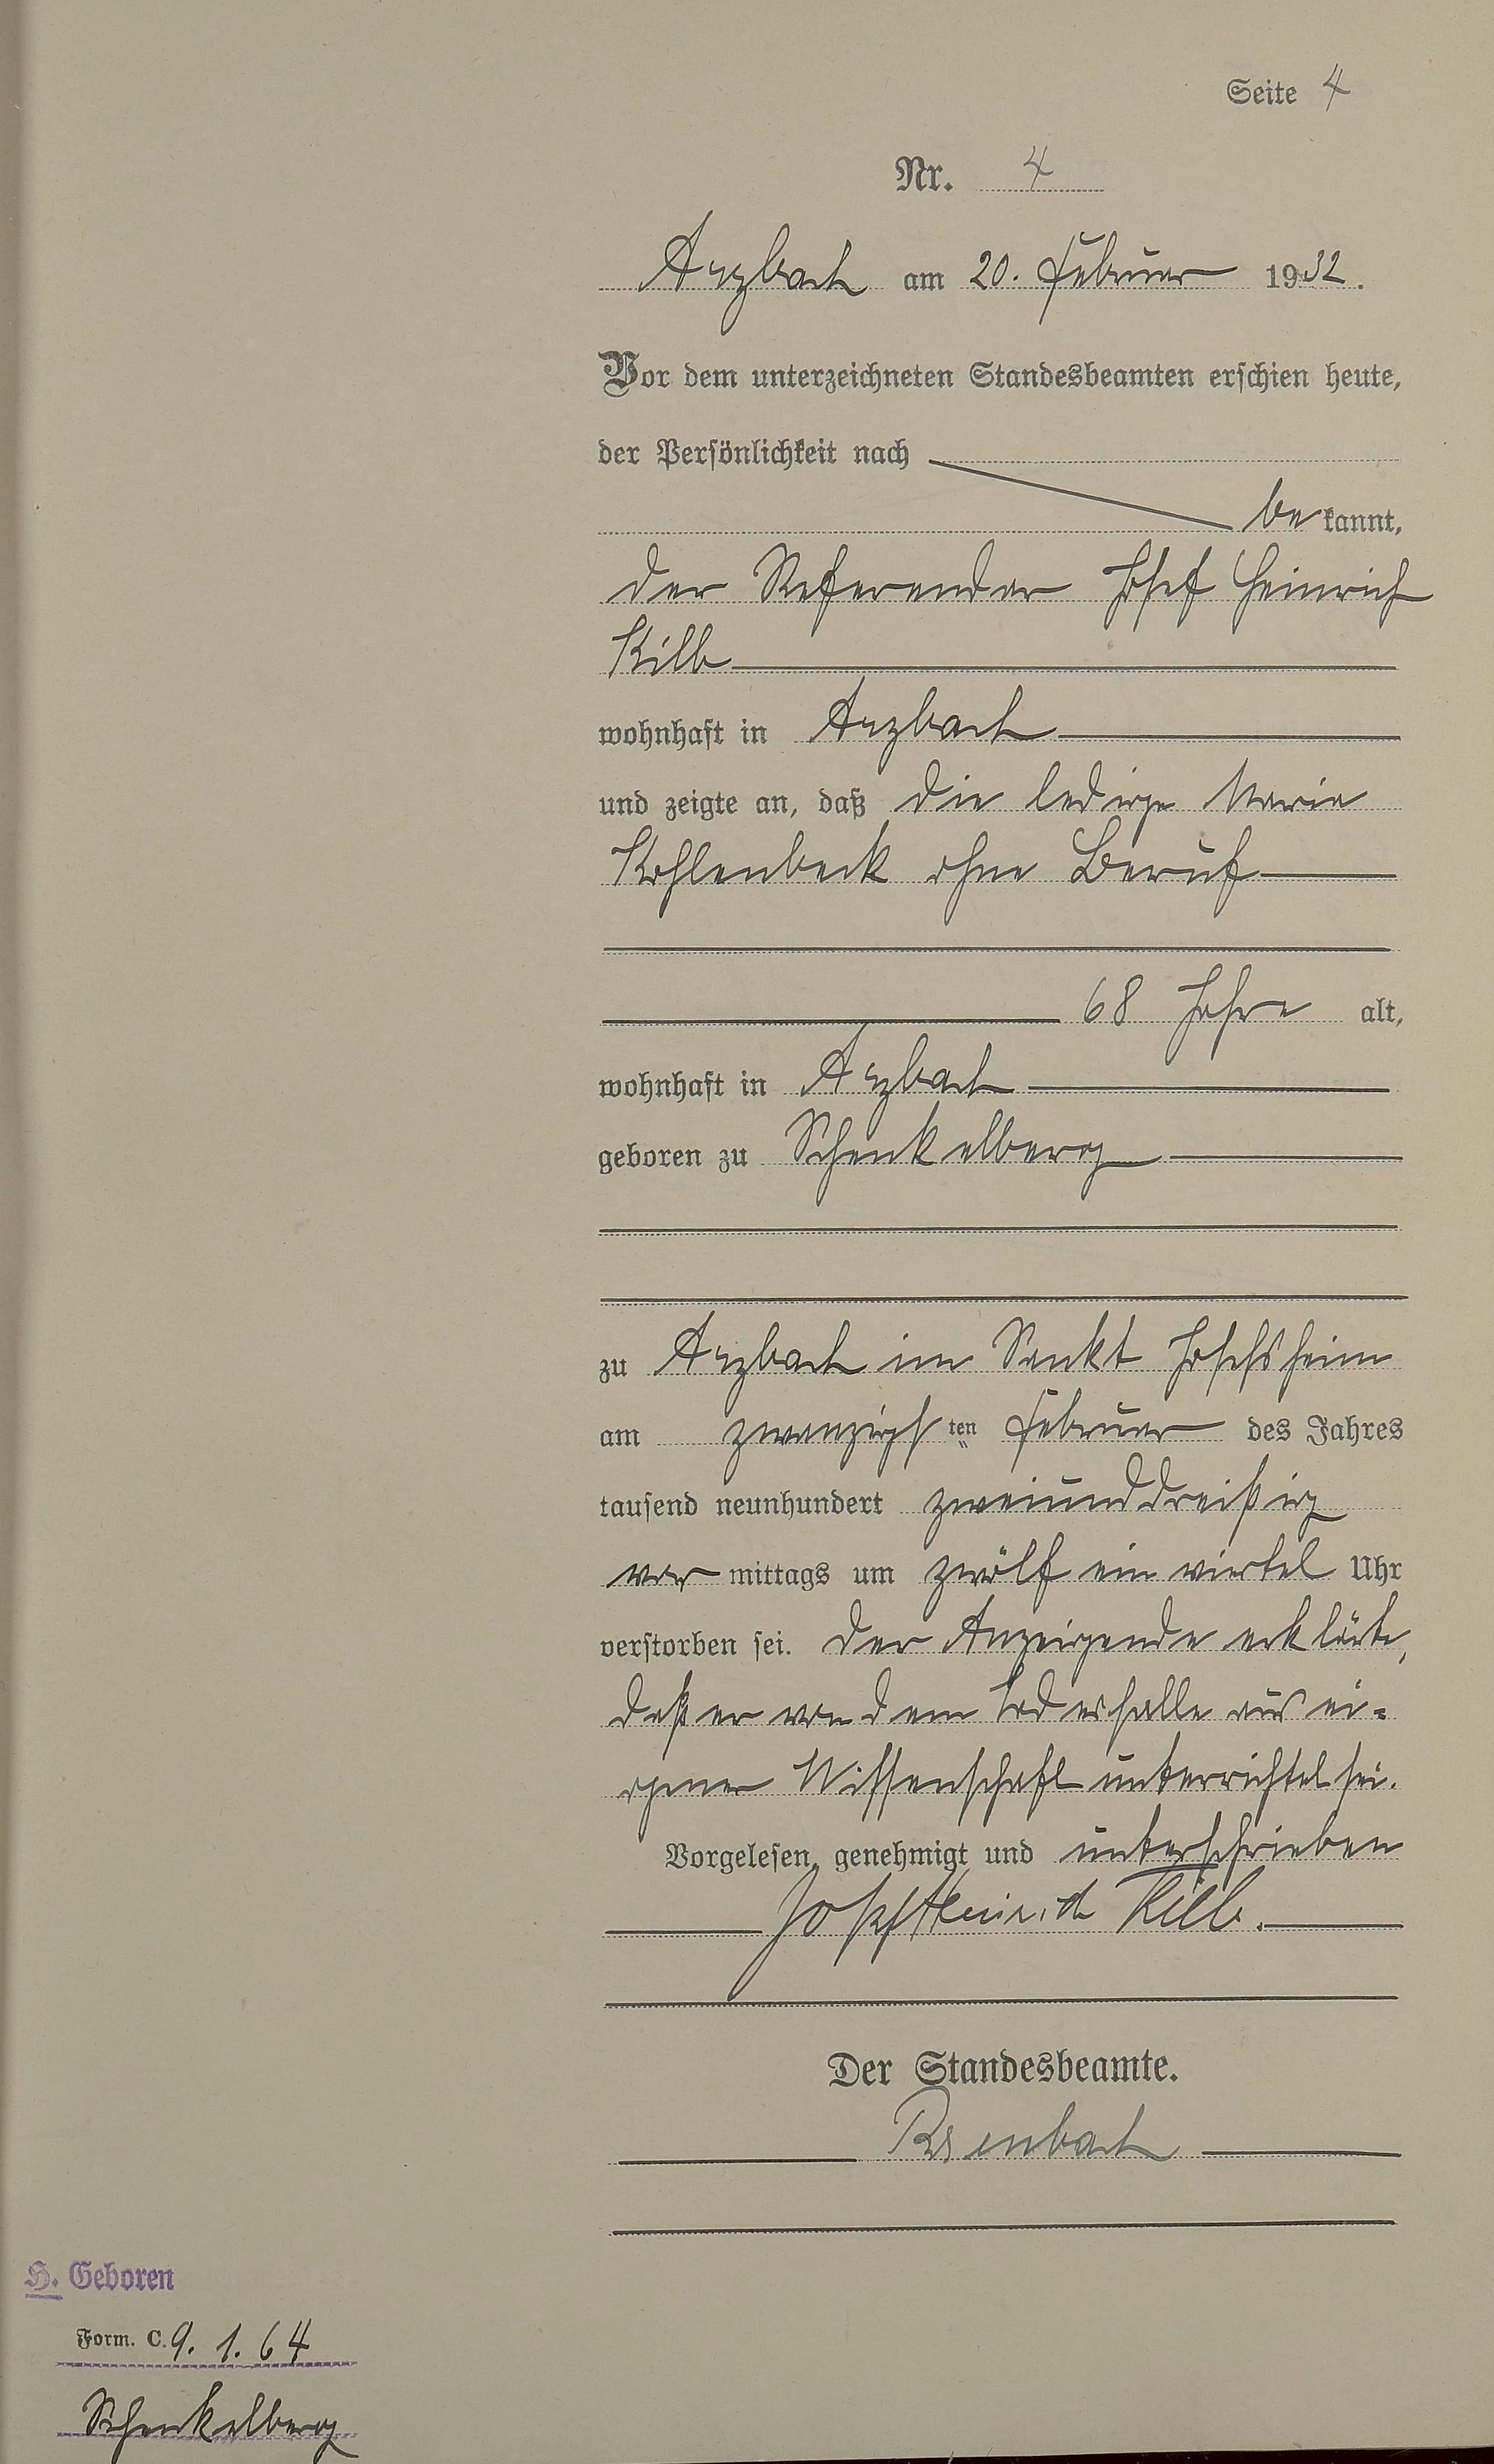 Seite 4
Nr. 4
Arzbach am 20. Februar 1932.
Vor dem unterzeichneten Standesbeamten erschien heute,
der Persönlichkeit nach
be kannt,
der Referendar Josef Heinrich
Kilb
wohnhaft in Arzbach
und zeigte an, daß die ledige Maria
Kohlenbeck ohne Beruf
68 Jahre alt,
wohnhaft in Arzbach
geboren zu Schenkelberg
zu Arzbach im Sankt Josefsheim
am zwanzigs ten Februar des Jahres
tausend neunhundert zweiunddreißig
vor mittags um zwölf ein viertel Uhr
verstorben sei. Der Anzeigende erklärte,
daß er von dem Todesfalle aus ei=
gener Wissenschaft unterrichtet sei.
Vorgelesen, genehmigt und unterschrieben
Josef Heinrich Kilb.
Der Standesbeamte.
H. Geboren
Form. C. 9. 1. 64
Schenkelberg